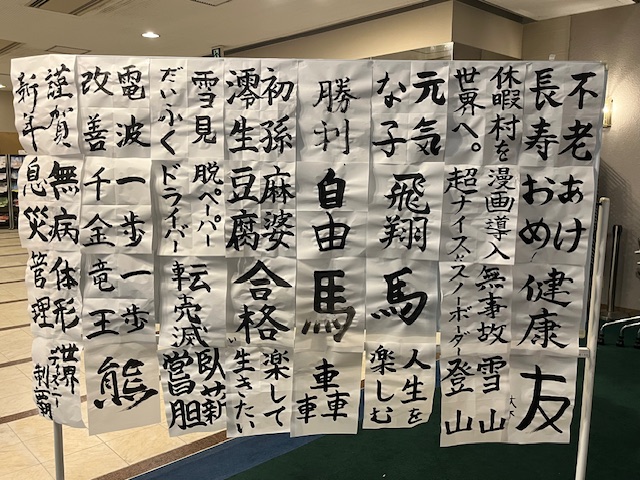 不老
長寿
休暇村を
世界へ。
元気
な子
勝利
初孫
澪生
雪見
だいふく
電波
改善
謹賀
新年
あけ
おめ
漫画導入
超ナイス!!
飛翔
自由
麻婆
豆腐
脱ペーパー
ドライバー
一歩
千金
無病
息災
健康
無事故
スノーボーダー
馬
馬
合格
転売滅
一歩
竜王
体形
管理
友
雪山
登山
人生を
楽しむ
轟
楽して
生きたい
臥薪
嘗胆
熊
世界
ディズニー
制覇